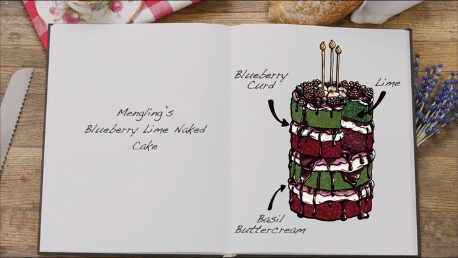 Mengling's
Blueberry Lime Naked
Cake
Blueberry
Curd
Lime
Basil
Buttercream